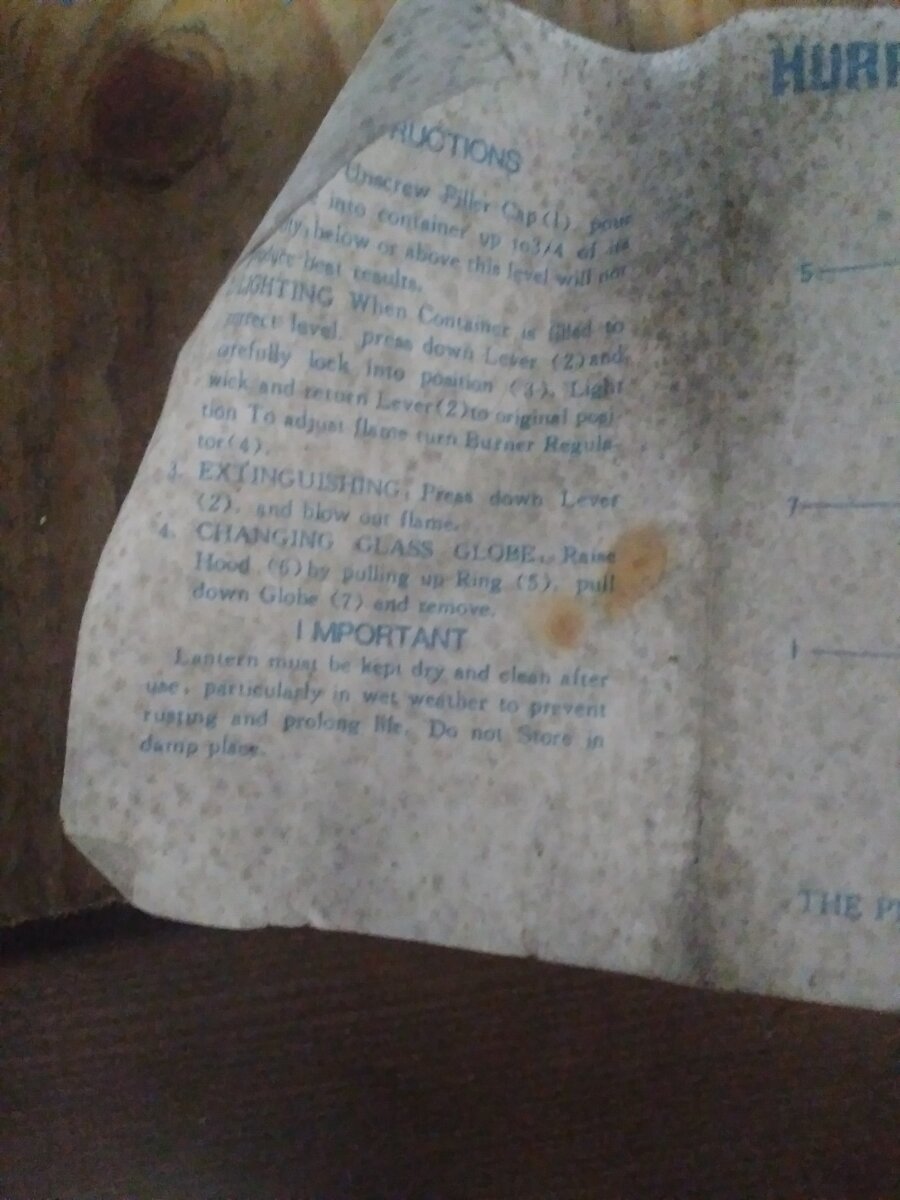 RUCTIONS
Unscrew Filler Cap(1), pour
into container up to3/4 of its
below or above this level will not
best results.
LIGHTING When Container is filled to
level, press down Lever (2)and
arefully lock into position (3). Light
wick and return Lever(2)to original posi-
tion To adjust flame turn Burner Regula-
tor(4).
3. EXTINGUISHING, Press down Lever
(2), and blow out flame.
4. CHANGING GLASS GLOBE, Raise
Hood (6)by pulling up Ring (5), pull
down Globe (7) and remove.
IMPORTANT
Lantern must be kept dry and clean after
use, particularly in wet weather to prevent
rusting and prolong life. Do not Store in
damp place.
HURR
5
7
1
THE P